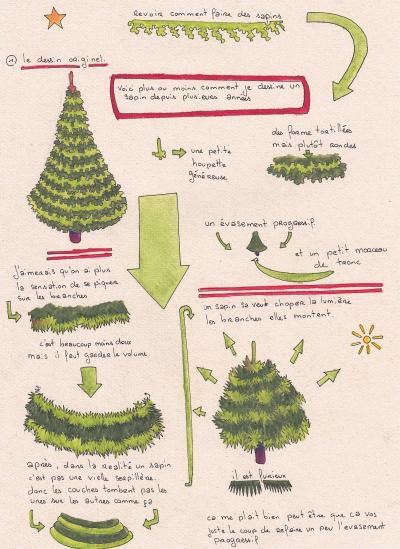 revoir comment faire des sapins
1 le dessin originel.
voici plus ou moins comment je dessine un
sapin depuis plusieurs années
une petite
houpette
généreuse
des forme tortillées
mais plutôt rondes
un évasement progressif.
et un petit morceau
de tronc
J'aimerais qu'on ai plus
la sensation de se piquer
sur les branches
c'est beaucoup moins doux
mais il faut garder le volume.
un sapin sa veut choper la lumière
les branches elles montent.
il est furieux
après, dans la réalité un sapin
c'est pas une vielle serpillère.
donc les couches tombent pas les
unes sur les autres comme ça
ça me plait bien peut être que ça vos
juste le coup de refaire un peu l'évasement
progressif